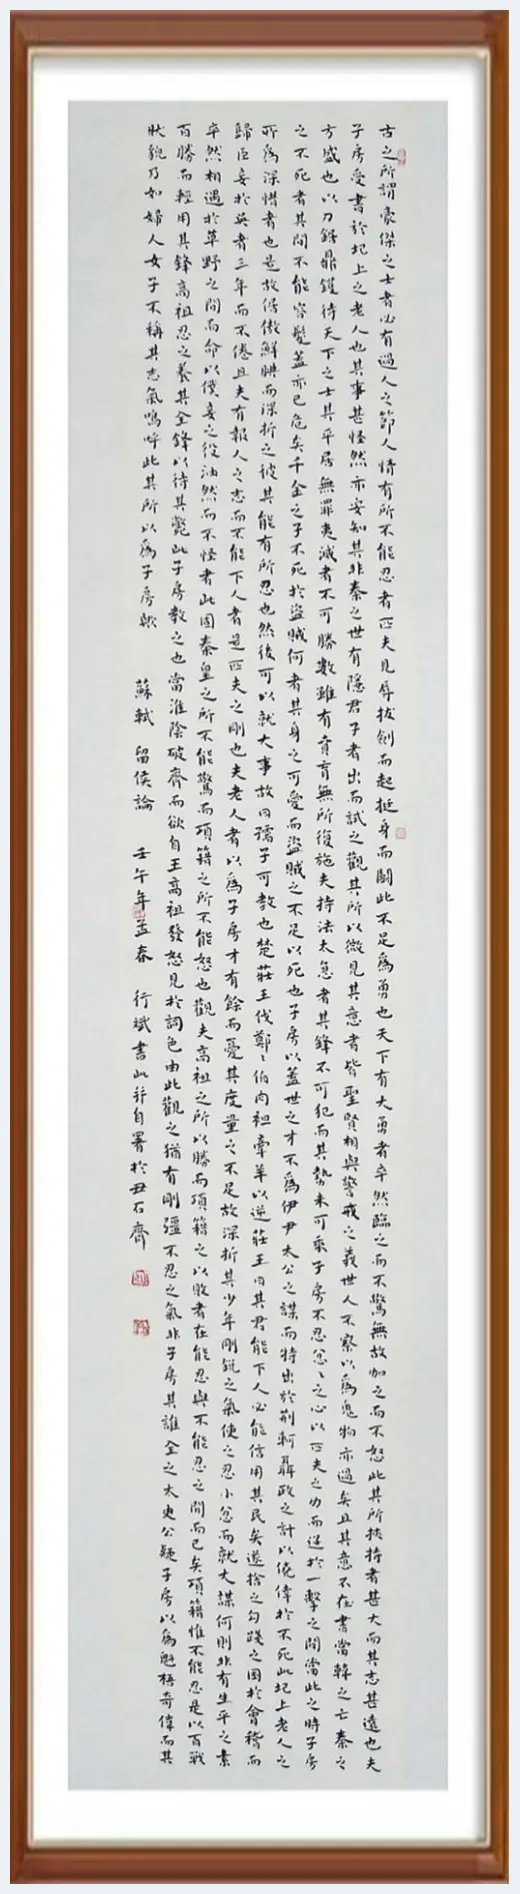 古之所謂豪傑之士者必有過人之節人情有所不能忍者匹夫見辱拔劍而起挺身而鬭此不足爲勇也天下有大勇者卒然臨之而不驚無故加之而不怒此其所挾持者甚大而其志甚遠也夫
子房受書於圯上之老人也其事甚怪然亦安知其非秦之世有隱君子者出而試之觀其所以微見其意者皆聖賢相與警戒之義世人不察以爲鬼物亦過矣且其意不在書當韓之亡秦之
方盛也以刀鋸鼎鑊待天下之士其平居無罪夷滅者不可勝數雖有賁育無所復施夫持法太急者其鋒不可犯而其勢未可乘子房不忍忿忿之心以匹夫之力而逞於一擊之間當此之時子房
之不死者其間不能容髮蓋亦已危矣千金之子不死於盜賊何者其身之可愛而盜賊之不足以死也子房以蓋世之才不爲伊尹太公之謀而特出於荊軻聶政之計以僥倖於不死此圯上老人之
所爲深惜者也是故倨傲鮮腆而深折之彼其能有所忍也然後可以就大事故曰孺子可教也楚莊王伐鄭鄭伯肉袒牽羊以逆莊王曰其君能下人必能信用其民矣遂捨之勾踐之困於會稽而
歸臣妾於吳者三年而不倦且夫有報人之志而不能下人者是匹夫之剛也夫老人者以爲子房才有餘而憂其度量之不足故深折其少年剛銳之氣使之忍小忿而就大謀何則非有生平之素
卒然相遇於草野之間而命以僕妾之役油然而不怪者此固秦皇之所不能驚而項籍之所不能怒也觀夫高祖之所以勝而項籍之以敗者在能忍與不能忍之間而已矣項籍惟不能忍是以百戰
百勝而輕用其鋒高祖忍之養其全鋒以待其斃此子房教之也當淮陰破齊而欲自王高祖發怒見於詞色由此觀之猶有剛彊不忍之氣非子房其誰全之太史公疑子房以爲魁梧奇偉而其
狀貌乃如婦人女子不稱其志氣嗚呼此其所以爲子房歟 蘇軾 留侯論 壬午年孟春 行斌書此并自署於丑石齋